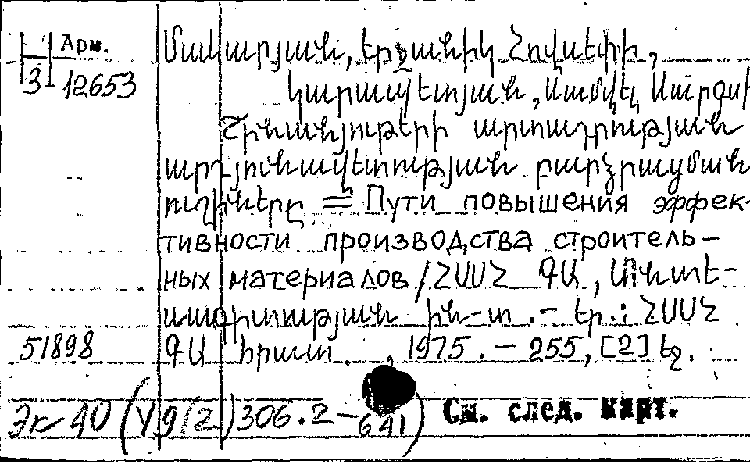 Арм.
3
12653
Մակարյան, Երջանիկ Հովսեփի,
Կարապետյան, Սամվել Սարգսի
Շինանյութերի արտադրության
արդյունավետության բարձրացման
ուղիները = Пути повышения эффек-
тивности производства строитель-
ных материалов / ՀՍՍՀ ԳԱ, Տնտե-
սագիտության ին-տ. - Եր.: ՀՍՍՀ
51898 ԳԱ հրատ., 1975. - 255, [2] էջ.
Эк 40 (У9(2)306.2-641) См. след. карт.